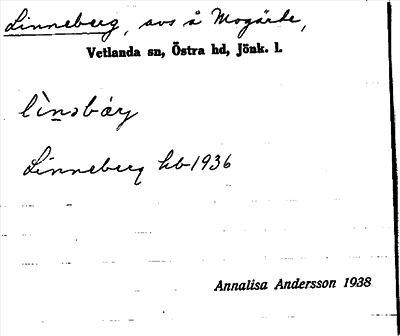 Linneberg, avs å Mogärde,
Vetlanda sn, Östra hd, Jönk. l.
lìnəbæ̀rj
Linneberg hb 1936
Annalisa Andersson 1938